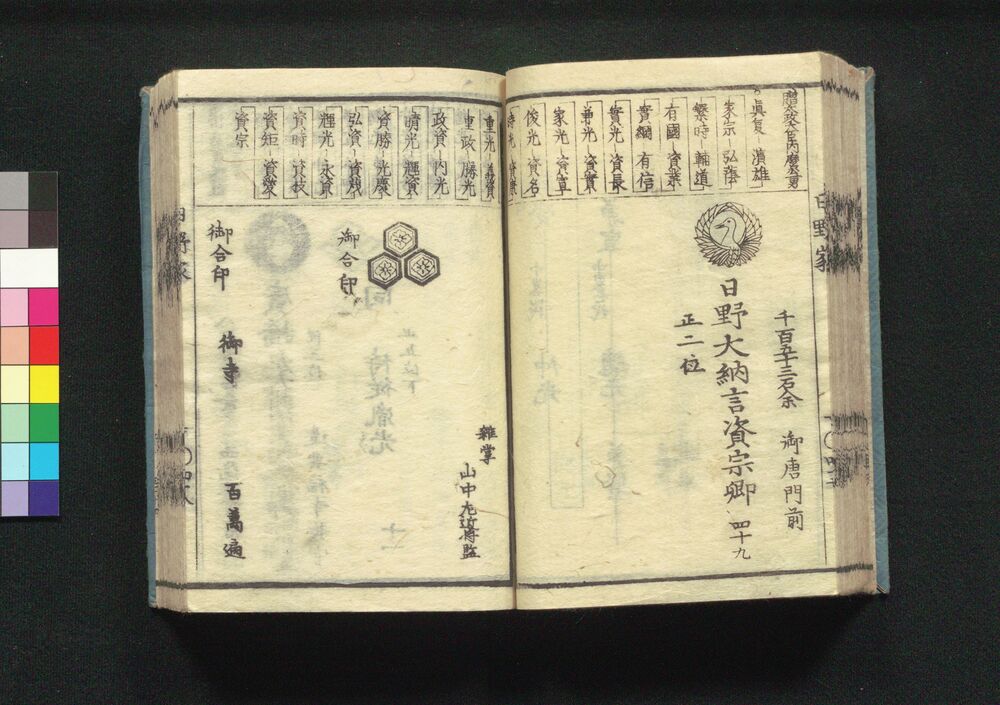 贈太政大臣内麿公男
眞夏 濱雄
家宗 弘蔭
繁時 輔道
有國 資業
實綱 有信
實光 資長
兼光 資實
家光 資宣
俊光 資名
時光 資康
重光 義資
重政 勝光
政資 内光
晴光 輝資
資勝 光慶
弘資 資茂
輝光 永資
資時 資枝
資矩 資愛
資宗
日野家
千百五十三石余 御唐門前
日野大納言資宗卿 四十九
正二位
雜掌
山中左近将監
御合印
御合印
御寺 百萬遍
日野家